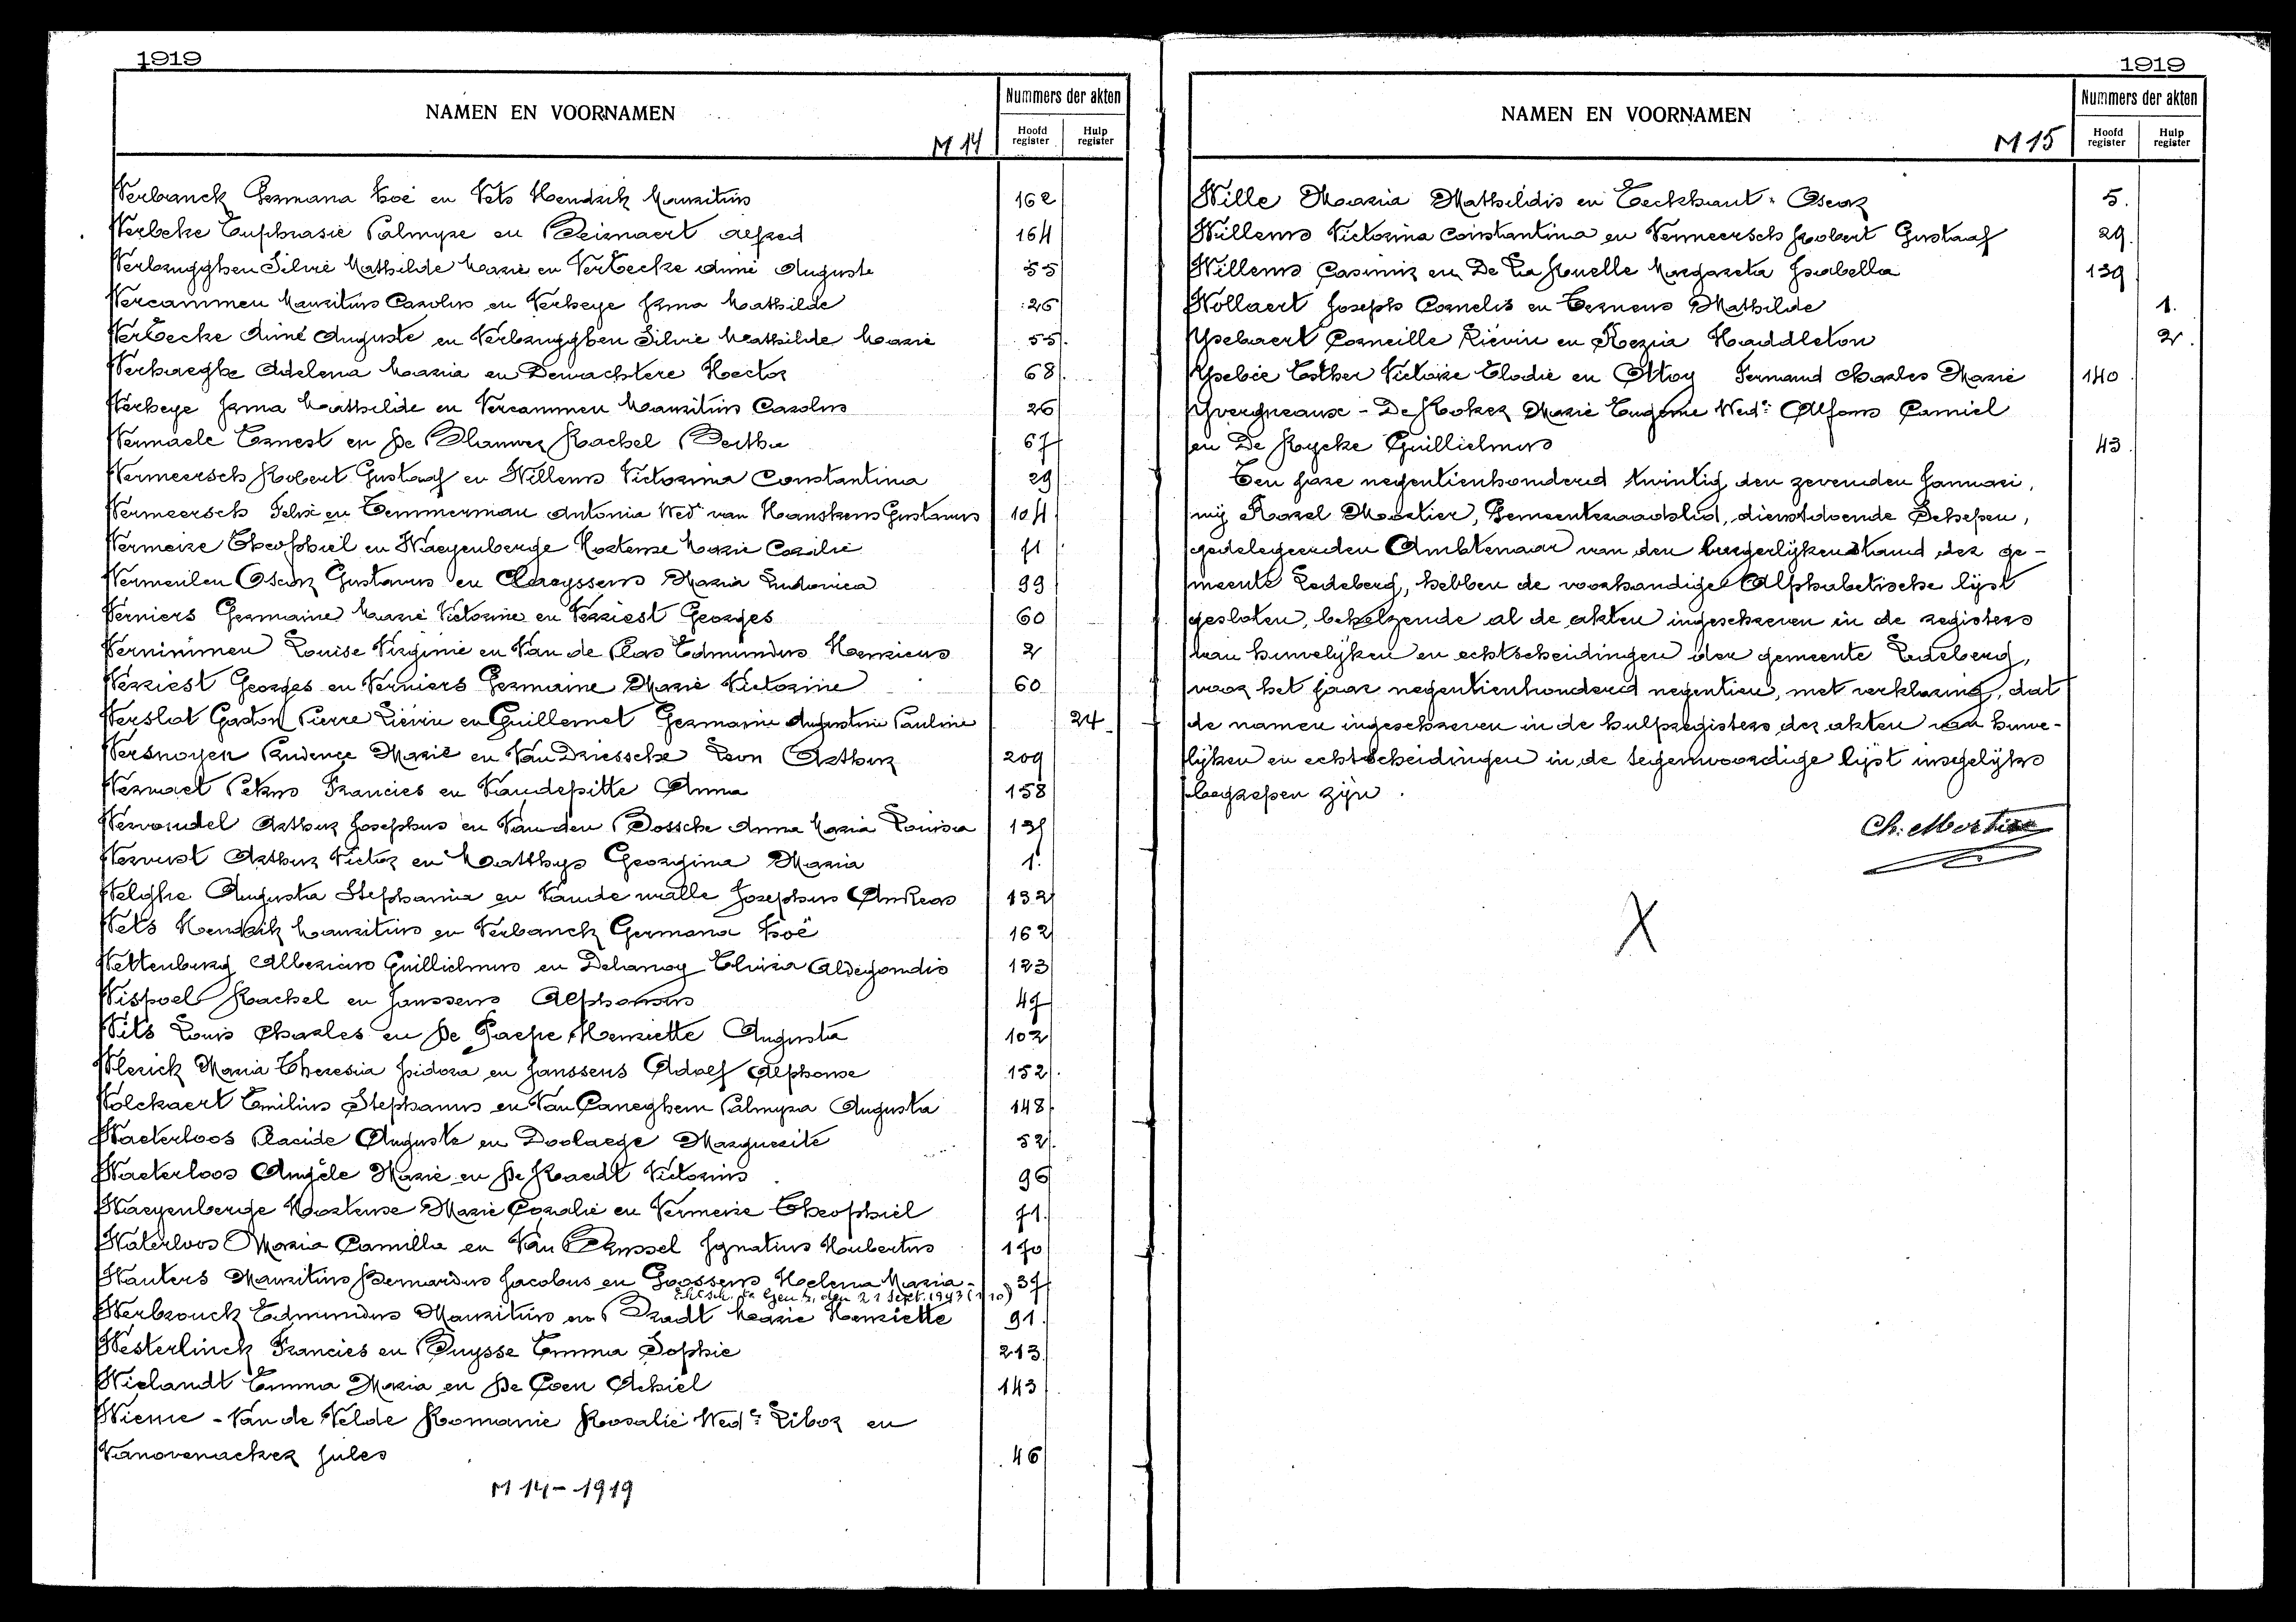 1919
NAMEN EN VOORNAMEN
M 14
Nummers der akten
Hoofd register
Hulp register
Verbanck Germana Zoë en Vets Hendrik Mauritius 162
Verbeke Euphrasie Palmyre en Beirnaert Alfred 164
Verbrugghen Silvie Mathilde Marie en VerEecke Aimé Auguste 55
Vercammen Mauritius Carolus en Verheye Irma Mathilde 26
VerEecke Aimé Auguste en Verbrugghen Silvie Mathilde Marie 55
Verhaeghe Adelena Maria en Dewachtere Hector 68
Verheye Irma Mathilde en Vercammen Mauritius Carolus 26
Vermaele Ernest en De Blauwer Rachel Bertha 67
Vermeersch Robert Gustaaf en Willems Victorina Constantina 29
Vermeersch Felix en Temmerman Antonia Wed. van Hanskens Gustavus 104
Vermeire Theophiel en Waeyenberge Hortense Marie Coralie 71
Vermeulen Oscar Gustavus en Claeyssens Maria Ludovica 99
Verniers Germaine Marie Victorine en Verriest Georges 60
Vernimmen Louise Virginie en Van de Plas Edmundus Henricus 2
Verriest Georges en Verniers Germaine Marie Victorine 60
Verslot Gaston Pierre Liévin en Guillemet Germaine Augustine Pauline 24
Versnoyen Prudence Marie en Van Driessche Leon Arthur 209
Vervaet Petrus Francies en Vandepitte Anna 158
Vervondel Arthur Josephus en Van den Bossche Anna Maria Louisa
Vervust Arthur Victor en Matthys Georgina Maria 1.
Velghe Augusta Stephania en Vande walle Josephus Andreas 132
Vets Hendrik Mauritius en Verbanck Germana Zoë 162
Vettenburg Albericus Guillielmus en Delanoy Elvira Aldegondis 123
Vispoel Rachel en Janssens Alphonsus 47
Vits Louis Charles en De Paepe Henriette Augusta 102
Vlerick Maria Theresia Isidora en Janssens Adolf Alphonse 152
Volckaert Emilius Stephanus en Van Caneghem Palmyra Augusta 148
Waeterloos Placide Auguste en Doolaege Marguerite 52
Waeterloos Angèle Marie en De Raedt Victorius 96
Waeyenberge Hortense Marie Coralie en Vermeire Theophiel 71
Waterloos Maria Camilla en Van Brussel Ignatius Hubertus 170
Wauters Mauritius Bernardus Jacobus en Goossens Helena Maria - 37
Echtsch. te Gent, den 21 Sept. 1943 (110)
Werbrouck Edmundus Mauritius en Bradt Marie Henriette 91
Westerlinck Francies en Buysse Emma Sophie 213
Wielandt Emma Maria en De Coen Achiel 143
Wieme - Van de Velde Romanie Rosalie Wede Libor en
Vanovenacker Jules 46
M 14 - 1919
1919
NAMEN EN VOORNAMEN
M 15
Nummers der akten
Hoofd register
Hulp register
Wille Maria Mathildis en Eeckhaut Oscar 5.
Willems Victorina Constantina en Vermeersch Robert Gustaaf 29
Willems Casimir en De La Ruelle Margareta Isabella 139
Wollaert Joseph Cornelis en Cernens Mathilde 1.
Ysebaert Corneille Liévin en Rezia Haddleton 2.
Ysebie Esther Victoire Elodie en Ottoy Fernand Charles Marie 140
Yvergneaux - De Roker Marie Eugenie Wede Alfons Camiel
en De Rycke Guillielmus 43
Ten jare negentienhonderd twintig den zevenden Januari,
wij Karel Mortier, Gemeenteraadslid, dienstdoende Schepen,
gedelegeerden Ambtenaar van den burgerlijken stand der ge-
meente Ledeberg, hebben de voorhandige Alphabetische lijst
gesloten, behelzende al de akten ingeschreven in de registers
van huwelijken en echtscheidingen der gemeente Ledeberg,
voor het jaar negentienhonderd negentien, met verklaring, dat
de namen ingeschreven in de hulpregisters der akten van huwe-
lijken en echtscheidingen in de tegenwoordige lijst insgelijks
begrepen zijn.
Ch. Mortier
X